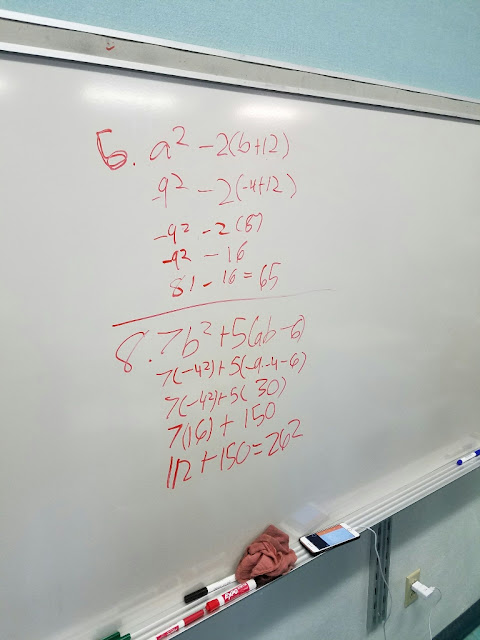 5. a² - 2(b+12)
-9² - 2(-4+12)
-9² - 2(8)
-9² - 16
81 - 16 = 65
8. 7b² + 5(ab - 6)
7(-4²) + 5(-9·-4 - 6)
7(-4²) + 5(30)
7(16) + 150
112 + 150 = 262
EXPO